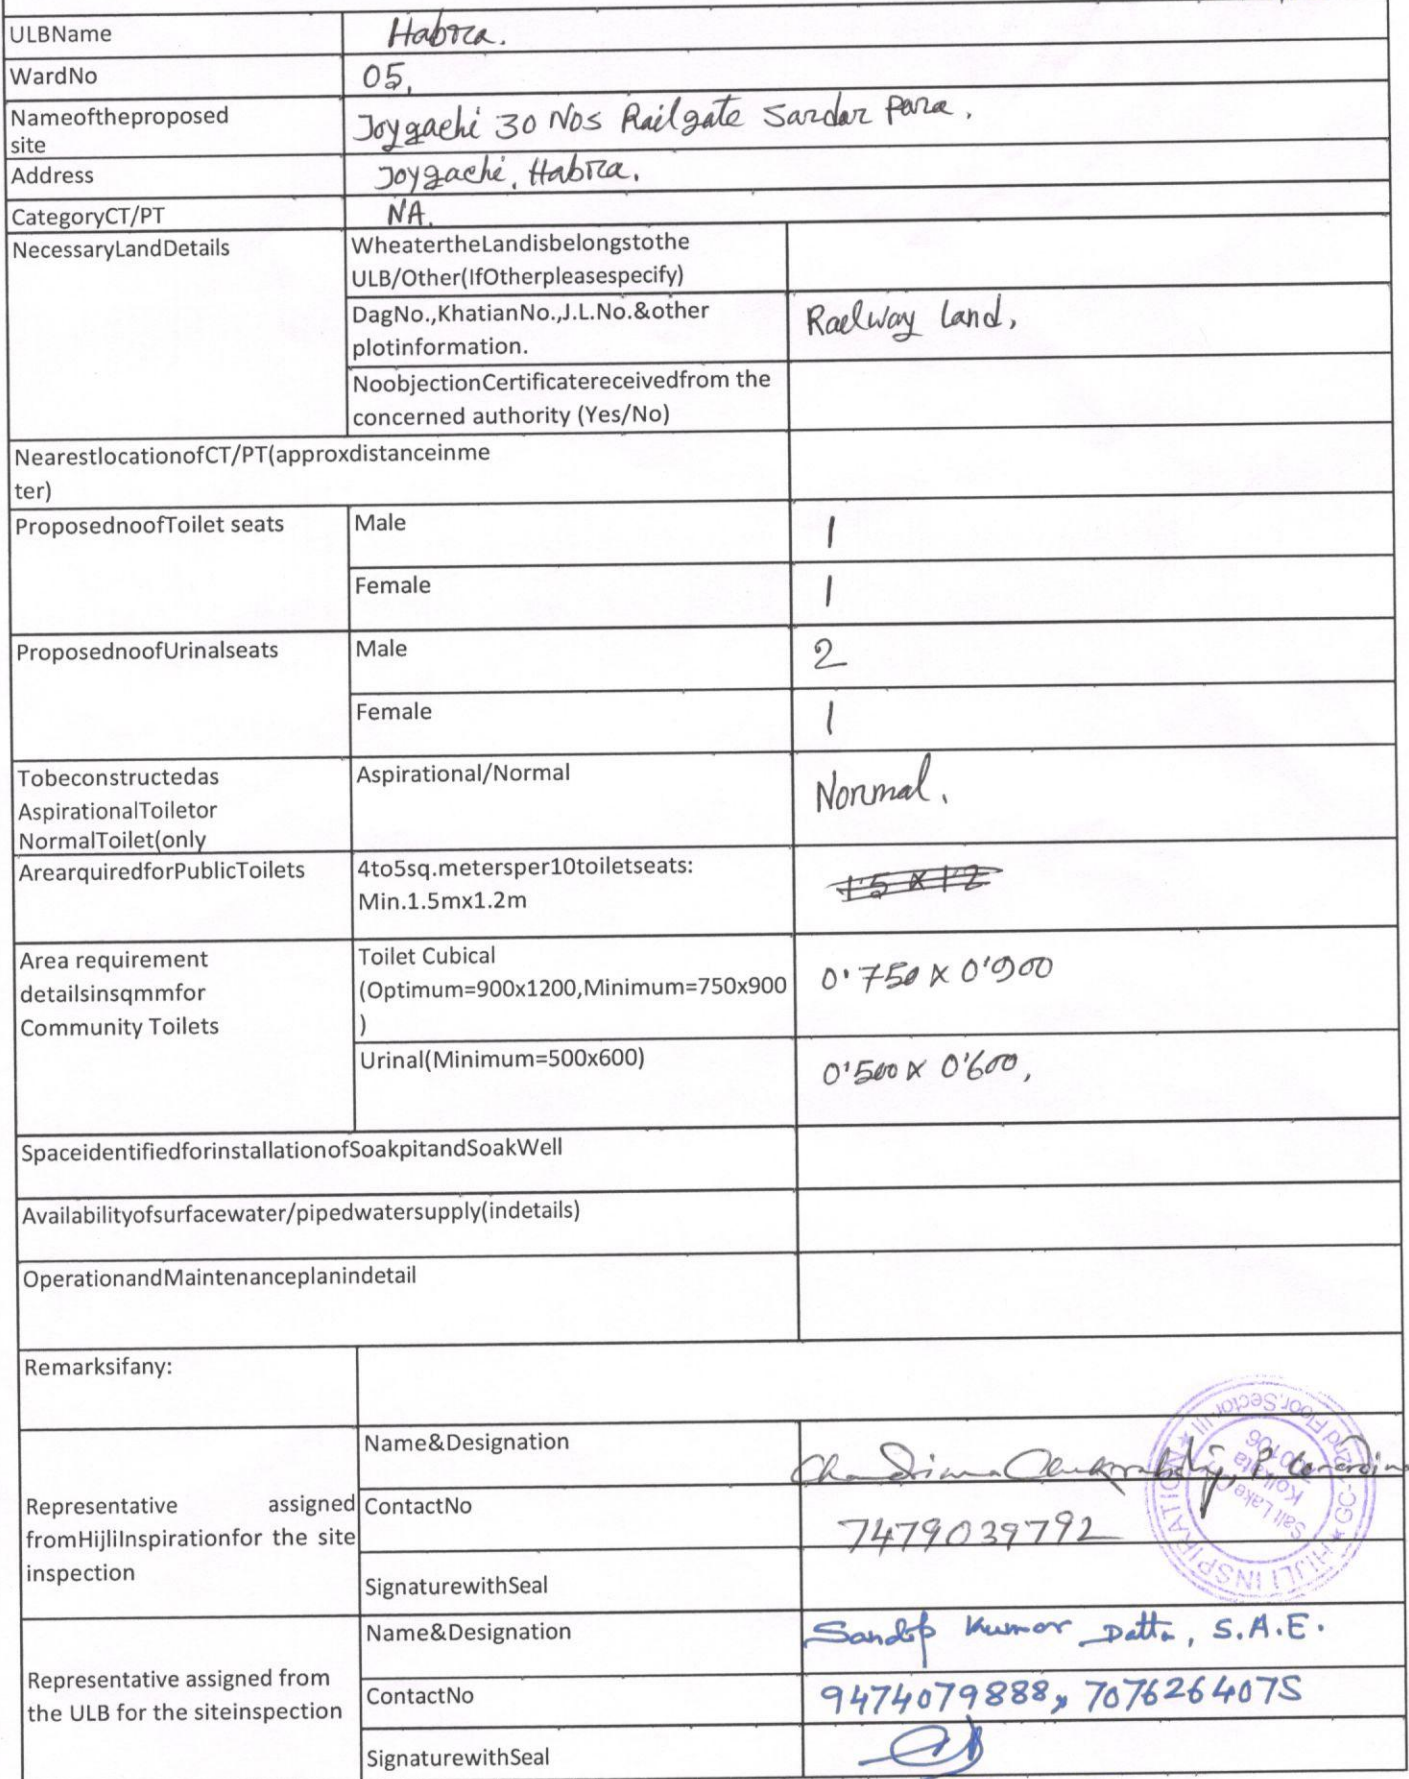 ULBName Habra.
WardNo 05,
Nameoftheproposed
site Joygachi 30 Nos Railgate Sardar para.
Address Joygachi, Habra.
CategoryCT/PT NA.
NecessaryLandDetails WheatertheLandisbelongstothe
ULB/Other(IfOtherpleasespecify)
DagNo.,KhatianNo.,J.L.No.&other
plotinformation. Raelway Land,
NoobjectionCertificatereceivedfrom the
concerned authority (Yes/No)
NearestlocationofCT/PT(approxdistanceinme
ter)
ProposednoofToilet seats Male 1
Female 1
ProposednoofUrinalseats Male 2
Female 1
Tobeconstructedas Aspirational/Normal Normal.
AspirationalToiletor
NormalToilet(only
ArearquiredforPublicToilets 4to5sq.metersper10toiletseats:
Min.1.5mx1.2m 1'5 x 1'2
Area requirement
detailsinsqmmfor
Community Toilets
Toilet Cubical
(Optimum=900x1200,Minimum=750x900
) 0'750 x 0'900
Urinal(Minimum=500x600) 0'500 x 0'600,
SpaceidentifiedforinstallationofSoakpitandSoakWell
Availabilityofsurfacewater/pipedwatersupply(indetails)
OperationandMaintenanceplanindetail
Remarksifany:
Representative assigned
fromHijliInspirationfor the site
inspection
Name&Designation Chandrima
ContactNo 7479039792
SignaturewithSeal
HIJLI INSPIRATION ★ GC- 2nd Floor.Sector-III ★
Salt Lake
Kolkata
Representative assigned from
the ULB for the siteinspection
Name&Designation Sandip Kumar Datta, S.A.E.
ContactNo 9474079888, 7076264075
SignaturewithSeal